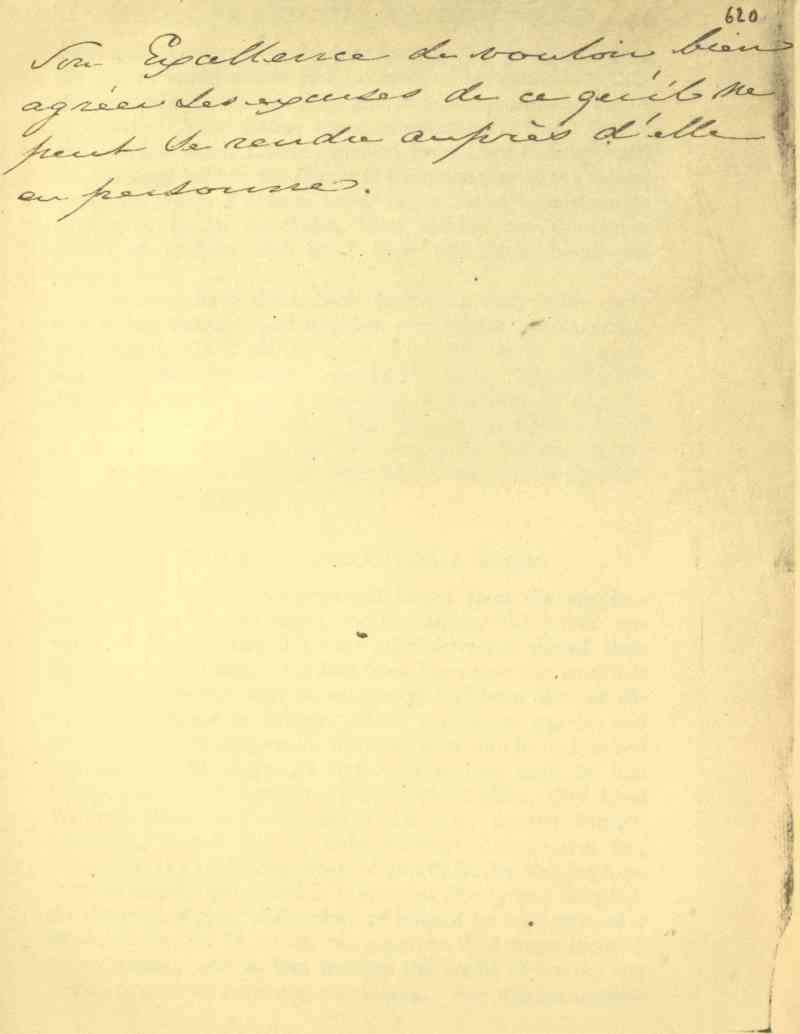 620
Son Excellence de vouloir bien
agréer ses excuses de ce qu'il ne
peut se rendre auprès d'elle
en personne.